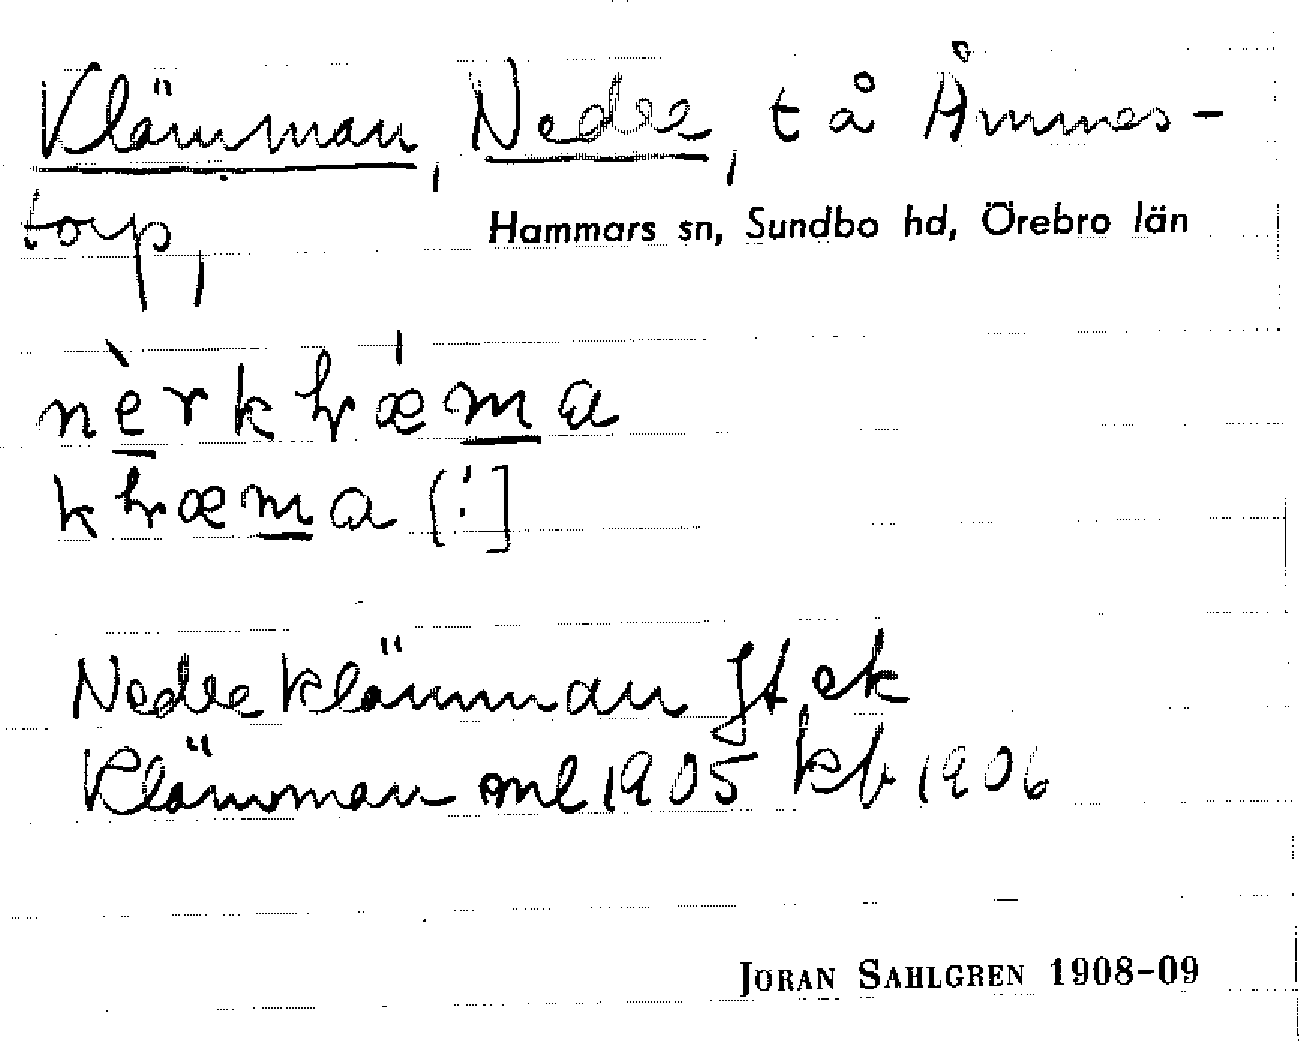 Klämman, Nedre, t å Åmmes-
torp,
Hammars sn, Sundbo hd, Örebro län
nèrkɫæ̍ma
kɫæma [!]
Nedre Klämman Jt. ek
Klämman ml 1905 kb 1906
JÖRAN SAHLGREN 1908-09